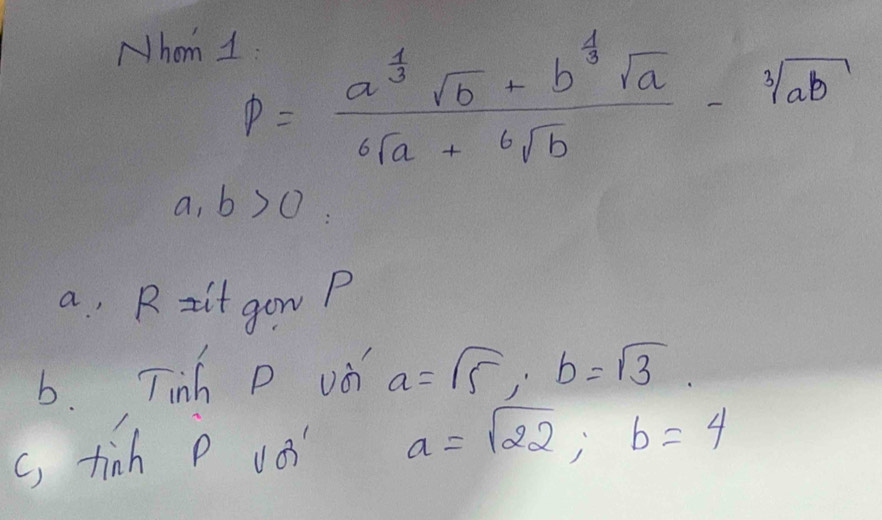 Nhóm 1:
P = \frac{a^{\frac{1}{3}} \sqrt{b} + b^{\frac{1}{3}} \sqrt{a}}{\sqrt[6]{a} + \sqrt[6]{b}} - \sqrt[3]{ab}
a, b > 0.
a., Rút gọn P
b. Tính P với a = \sqrt{5}; b = \sqrt{3}.
c, tính P với a = \sqrt{22}; b = 4